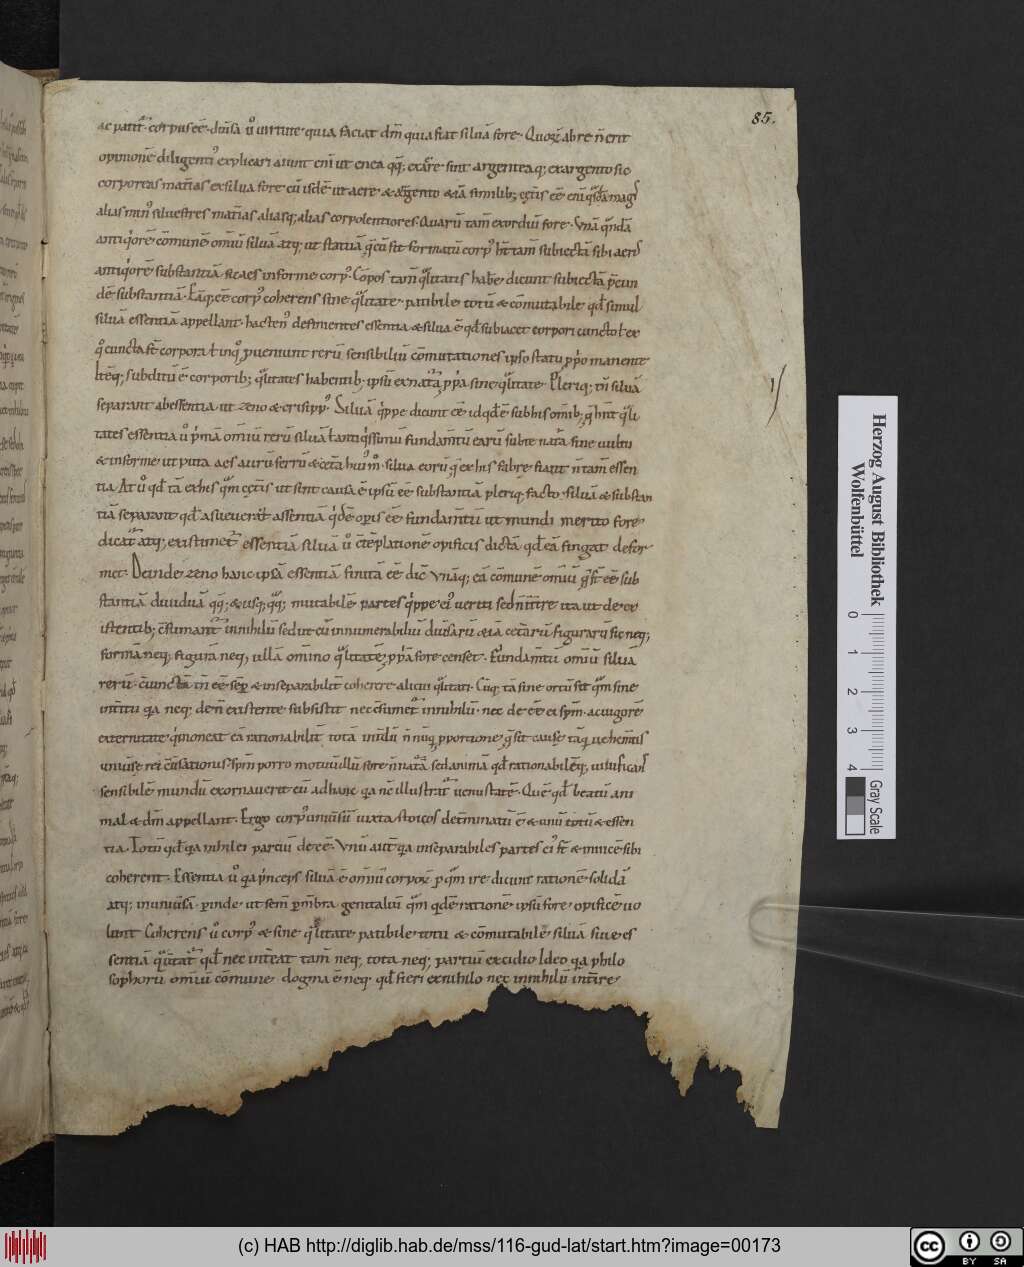 85.
ac patit͛ corpus eē. diuisā u͛o uirtute quia faciat dm̄ quia fiat siluā fore. Quoꝝ ab re n̄ erit
opinionē diligenti᷒ explicari aiunt eni᷒ ut enea qq̄; ex aere sint argenteaq; ex argento sic
corporeas mat̄ias ex silua fore cū isdē ut aere & argento & iā similib; cet̄is eē eni᷒ q̄sdā mag᷒
alias min᷒ siluestres mat̄ias aliasq; alias corpolentiores. Quarū tam̄ exordiū fore. Vnā quādā
antiq̄orē cōmunē omniū siluā. atq; ut statuā q̄ cū sit formatū corp᷒ ht̄ tam̄ subiectā sibi aeris
antiq̄orē substantiā. sic aes informe corp᷒. Cōpos tam̄ q̄litatis habe dicunt subiectā p̄cun
dē substantiā. Eāq; eē corp᷒ coherens sine q̄litate. patibile totū & cōmutabile qd̄ simul
siluā essentiā appellant. hacten᷒ definientes essentia & silua ē qd̄ subiacet corpori cuncto ł ex
q̊ cuncta st̄ corpora ł in q̊ p̱ueniunt rerū sensibiliū cōmutationes ipso statu pp̄o manente
Itēq; subditū ē corporib; q̄litates habentib; ipsū ex nat̄a pp̄a sine q̄litate. Pleriq; tn̄ siluā
separant ab essentia. ut zeno & crisipp᷒. Siluā q̄ppe dicunt eē id qd̄ ē sub his om̄ib; q̄ hn̄t q̄li
tates essentiā u͛o p̄mā omniū rerū siluā ł antiq̄ssimū fundam̄tū earū suapte nat̄a sine uultu
& informe ut puta aes aurū ferrū & cet̄a hui᷒m̊. silua eorū q̄ ex his fabre fiaut n̄ tam̄ essen
tia. At u͛o qd̄ tā ex his q̄m cet̄is ut sint causa ē ipsū eē substantiā. pleriq; facto siluā & substan
tiā separant qd̄ asseuerat̄ essentiā q̄dē opis eē fundam̄tū ut mundi merito fore
dicat̄ atq; existimet̄ essentiā siluā u͛o c̄tēplationē opificis dictā qd̄ eā fingat & efor
met. Deinde zeno hanc ipsā essentiā finitā eē dic̄ vnāq; eā cōmunē omniū q̄ st̄ eē sub
stantiā diuiduā qq̄; & usq; qq̄; mutabilē partes q̄ppe ei᷒ uerti sed n̄ int̄ire ita ut de ex
istentib; c̄sumant̄ in nihilū sed ut cū innumerabiliū diuisarū & iā cet̄arū figurarū sic neq;
formā neq; figurā neq; ullā omnino q̄litatē pp̄ā fore censet. Fundam̄tū omniū siluā
rerū. c̄iunctā tn̄ eē sēp & inseparabilit̄ coherere alicui q̄litati. Cūq; tā sine ortu sit q̄m sine
int̄itu q̄a neq; de n̄ existente subsistit nec c̄sumet̄ in nihilū. nec deeē ei spm̄. ac uigorē
ex eternitate q̄ moueat eā rationabilit̄ totā int̄dū n̄ nūq̄ p̱ portione q̄ sit causę tāq; uehem̄tis
uniuersę rei c̄uersationis spm̄ porro motiuū illū fore n̄ nat̄ā sed animā qd̄ rationabilēq; uiuificans
sensibile mundū exornauerit cū ad hanc q̄a nc̄ illustrat̄ uenustatē. Quē qd̄ beatū ani
mal & dm̄ appellant. Ergo corp᷒ uniuersū iuxta stoicos det̄minatū ē & unū totū & essen
tia. Totū qd̄ q̄a nihil ei partiū deeē. Vnū aut̄ q̄a inseparabiles partes ei᷒ st̄ & inuicē sibi
coherent. Essentia u͛o q̄a p̄nceps siluā ē omniū corpoꝝ p̱ q̄m ire dicunt rationē solidā
atq; uniuersā. perinde ut semē p̱ m̄bra genitaliū q̄m qdē rationē ipsū fore opifice uo
lunt. Coherens u͛o corp᷒ & sine q̄litate patibile totū & cōmutabilē siluā siue es
sentiā q̄litat̄ qd̄ nec int̄eat tam̄ neq; tota neq; partiū excidio Ideo q̄a philo
sophorū omniū cōmune dogma ē neq; qd̄ fieri ex nihilo nec in nihilū int̄ire
Herzog August Bibliothek
Wolfenbüttel
0 1 2 3 4
Gray Scale
(c) HAB http://diglib.hab.de/mss/116-gud-lat/start.htm?image=00173
cc BY SA